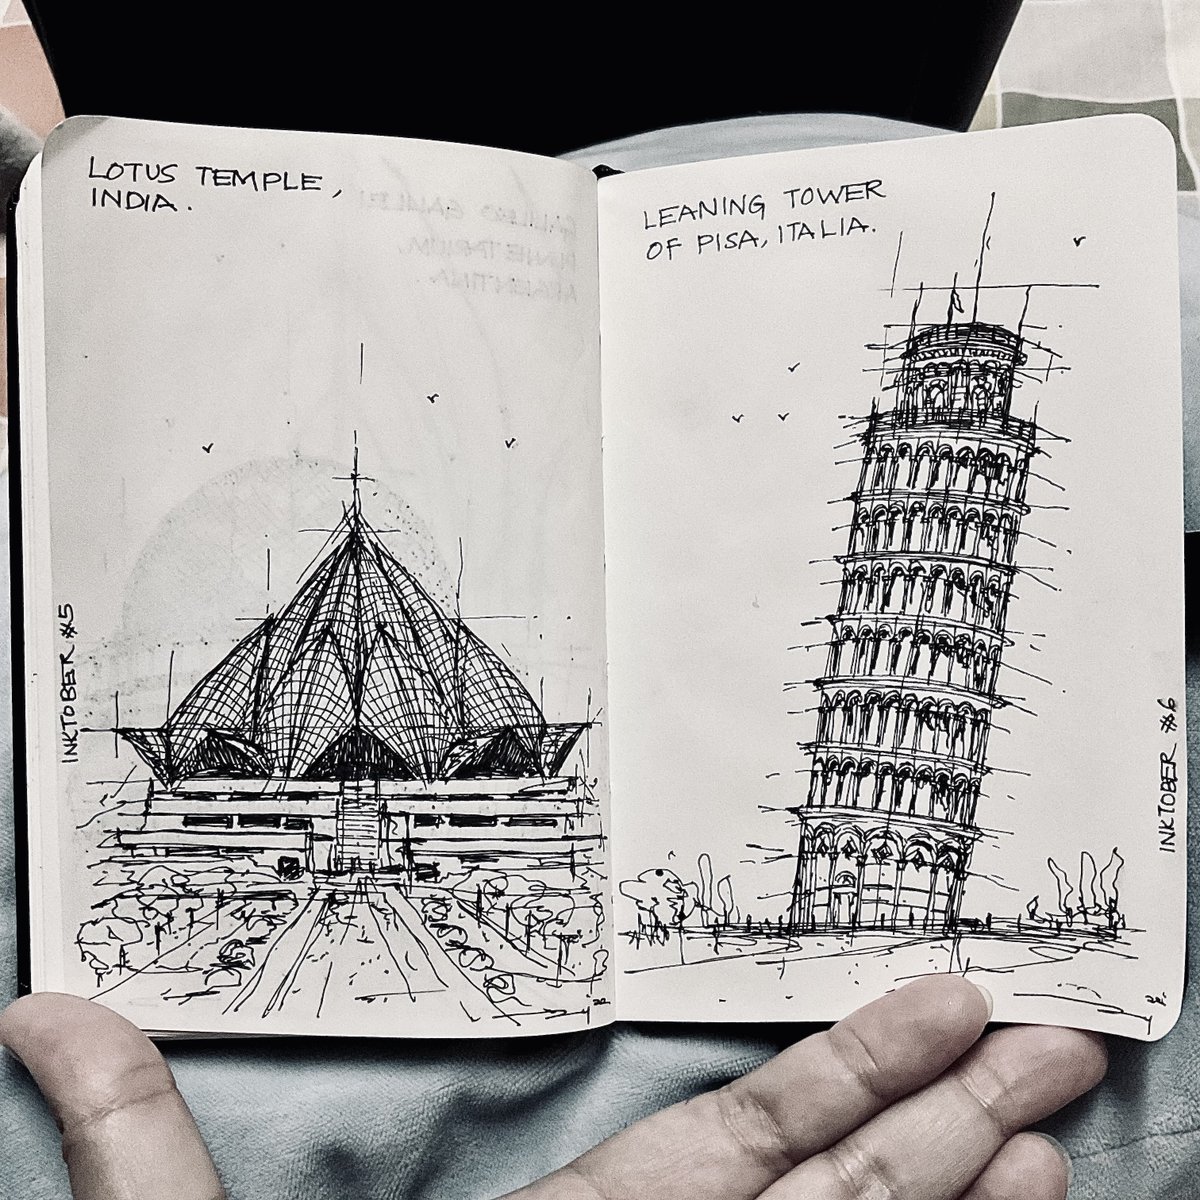 LOTUS TEMPLE,
INDIA.
INKTOBER #5
LEANING TOWER
OF PISA, ITALIA.
INKTOBER #6